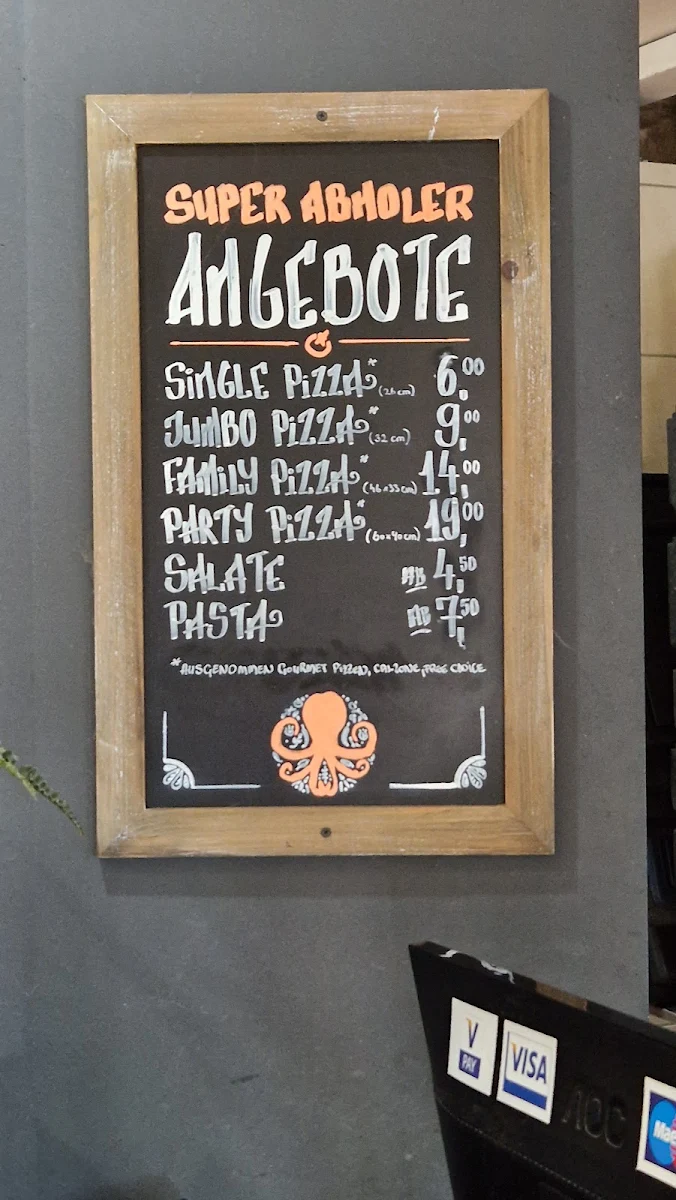 SUPER ABHOLER
ANGEBOTE
SiNGLE PiZZA* (26 cm) 6,00
JUMBO PiZZA* (32 cm) 9,00
FAMiLY PiZZA* (46x33cm) 14,00
PARTY PiZZA* (60x40cm) 19,00
SALATE AB 4,50
PASTA AB 7,50
*AUSGENOMMEN GOURMET PIZZEN, CALZONE, FREE CHOICE
V PAY
VISA
AOC
Mae